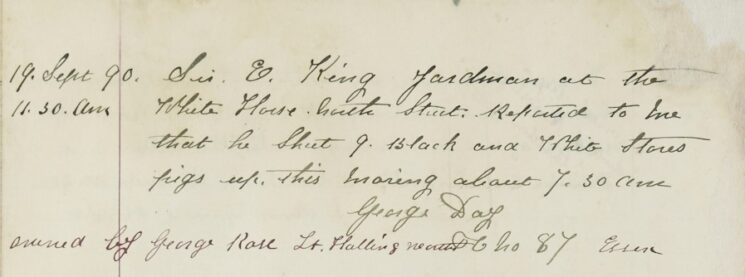 19. Sept 90. Sir. E. King Yardman at the
11.30. am White Horse. North Street. Reported to me
that he Shut 9. Black and White Stores
pigs up. this moring about 7.30 am
George Day
owned by George Rose Lt. Halling PC no 87 Essex